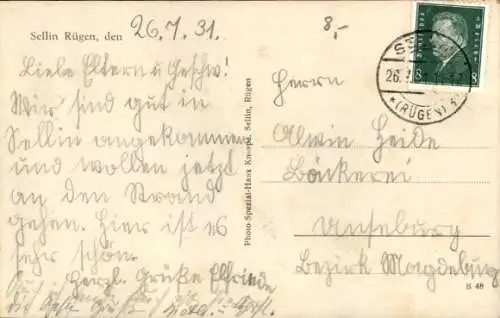 Sellin Rügen, den 26.7.31.
8,-
Liebe Eltern u Geschw!
Wir sind gut in
Sellin angekommen
und wollen jetzt
an den Strand
gehen. Hier ist es
sehr schön.
Herzl. Grüße Elfriede
Photo-Spezial-Haus Knospe, Sellin, Rügen
8 8
26.7.31
*(RÜGEN)
Herrn
Alwin Heide
Bäckerei
Unseburg
Bezirk Magdeburg
B 48